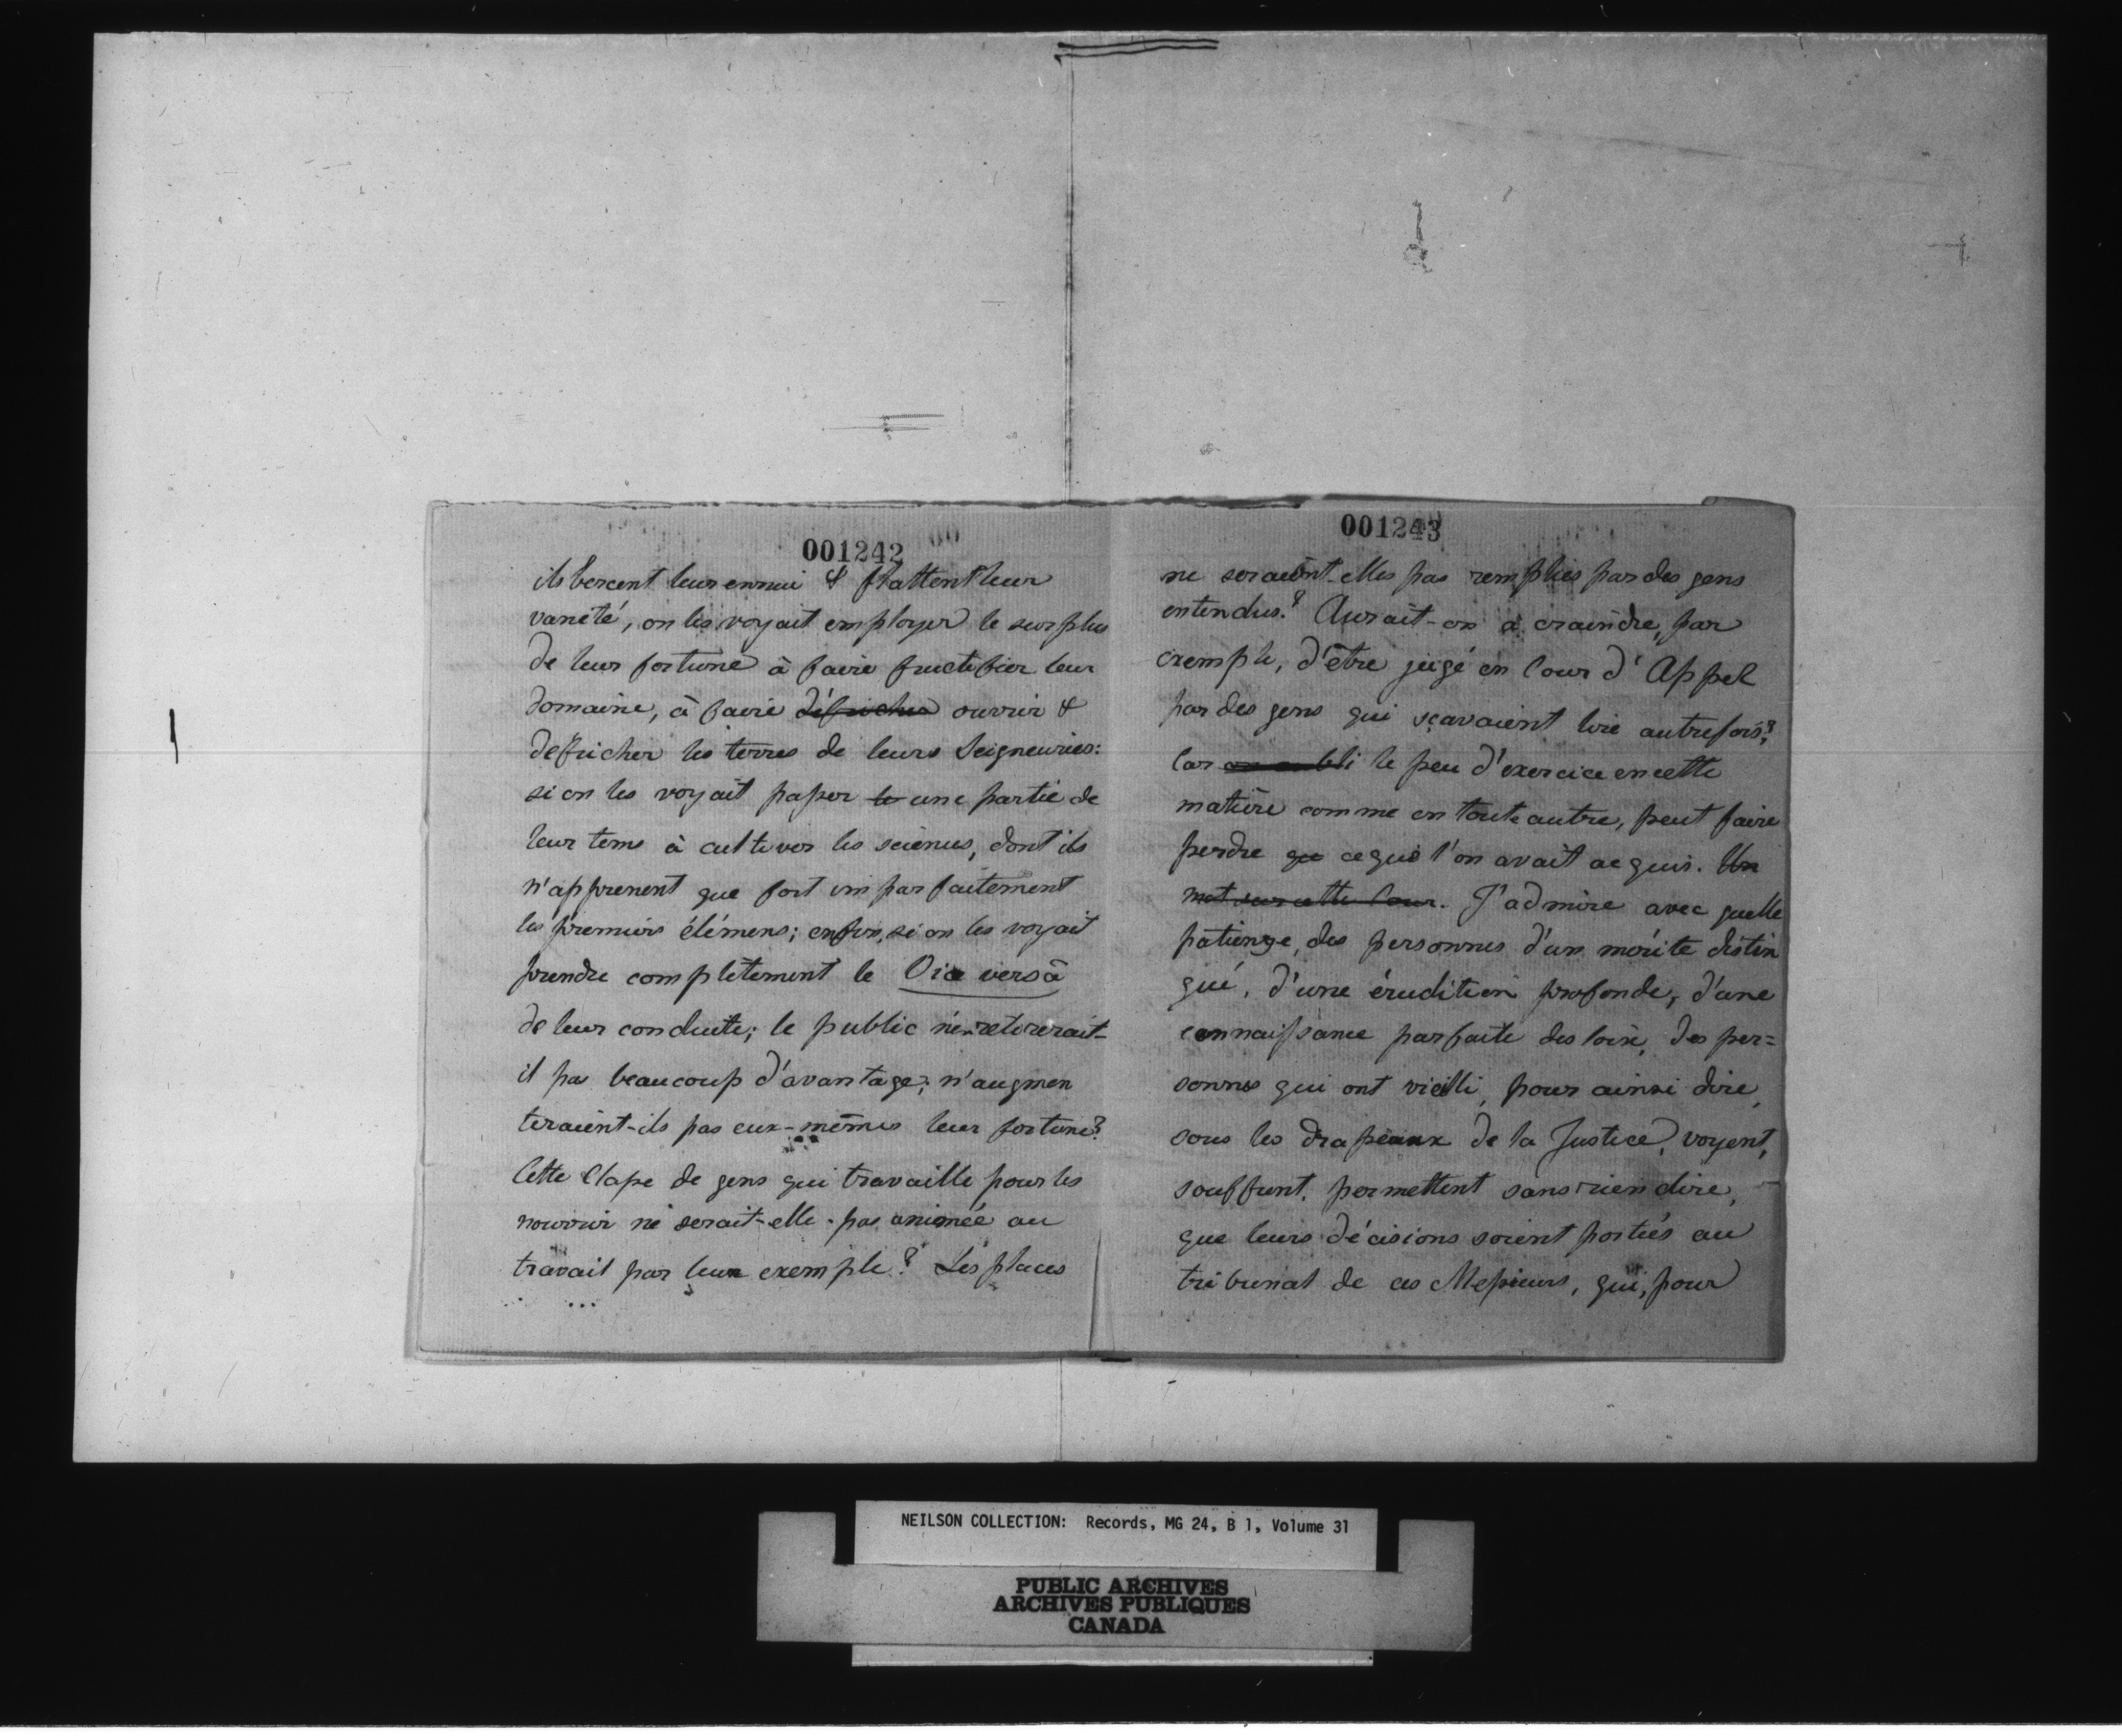 001242
ils bercent leur ennui & flattent leur
vanété, on les voyait employer le surplus
de leur fortune à faire fructifier leur
domaine, à faire défricher ouvrir &
défricher les terres de leurs Seigneuries:
si on les voyait passer le une partie de
leur tems à cultiver les sciences, dont ils
n'apprenent que fort imparfaitement
les premiers élémens; enfin, si on les voyait
prendre complètement le Vice versâ
de leur conduite; le public n'en retirerait-
il pas beaucoup d'avantage; n'augmen
teraient-ils pas eux-mêmes leur fortune?
Cette Classe de gens qui travaille pour les
nourrir ne serait-elle pas animée au
travail par leur exemple? Les places
001243
ne seraient-elles pas remplies par des gens
entendus? Aurait-on à craindre, par
exemple, d'être jugé en Cour d'Appel
par des gens qui sçavaient lire autrefois?
Car on oubli le peu d'exercice en cette
matière comme en toute autre, peut faire
perdre que ce que l'on avait acquis. Un
mot sur cette Cour. J'admire avec quelle
patience, des personnes d'un mérite distin
gué, d'une érudition profonde, d'une
connaissance parfaite des loix, des per=
sonnes qui ont vieilli, pour ainsi dire,
sous les drapeaux de la Justice, voyent,
souffrent, permettent sans rien dire,
que leurs décisions soient portées au
tribunal de ces Messieurs, qui, pour
NEILSON COLLECTION: Records, MG 24, B 1, Volume 31
PUBLIC ARCHIVES
ARCHIVES PUBLIQUES
CANADA